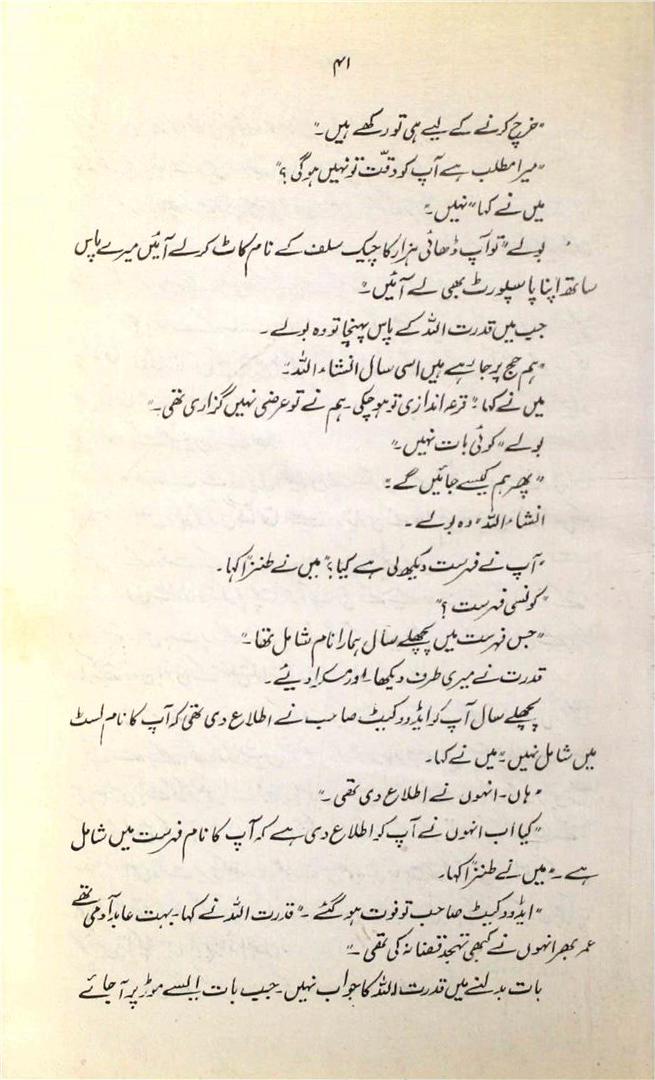 ۴۱
"خرچ کرنے کے لیے ہی تو رکھے ہیں۔"
"میرا مطلب ہے آپ کو دقّت تو نہیں ہو گی؟"
میں نے کہا "نہیں۔"
بولے "تو آپ ڈھائی ہزار کا چیک سلف کے نام کاٹ کر لے آئیں میرے پاس
ساتھ اپنا پاسپورٹ بھی لے آئیں۔"
جب میں قدرت اللہ کے پاس پہنچا تو وہ بولے۔
"ہم حج پر جا رہے ہیں اسی سال انشاء اللہ۔"
میں نے کہا: "قرعہ اندازی تو ہو چکی۔ ہم نے تو عرضی نہیں گزاری تھی۔"
بولے "کوئی بات نہیں۔"
"پھر ہم کیسے جائیں گے۔"
انشاء اللہ" وہ بولے۔
"آپ نے فہرست دیکھ لی ہے کیا؟" میں نے طنزاً کہا۔
"کونسی فہرست؟"
"جس فہرست میں پچھلے سال ہمارا نام شامل تھا۔"
قدرت نے میری طرف دیکھا۔ اور مسکرا دیئے۔
پچھلے سال آپ کو ایڈووکیٹ صاحب نے اطلاع دی تھی کہ آپ کا نام لسٹ
میں شامل نہیں۔" میں نے کہا۔
"ہاں۔ انہوں نے اطلاع دی تھی۔"
"کیا اب انہوں نے آپ کو اطلاع دی ہے کہ آپ کا نام فہرست میں شامل
ہے۔" میں نے طنزاً کہا۔
"ایڈووکیٹ صاحب تو فوت ہو گئے۔" قدرت اللہ نے کہا۔ بہت عابد آدمی تھے
عمر بھر انہوں نے کبھی تہجد قضا نہ کی تھی۔"
بات بدلنے میں قدرت اللہ کا جواب نہیں۔ جب بات ایسے موڑ پر آ جائے